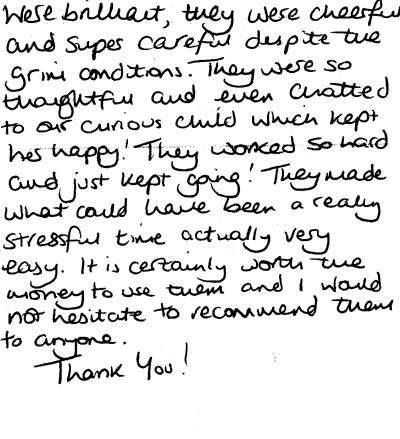 were brilliant, they were cheerful
and super careful despite the
grim conditions. They were so
thoughtful and even chatted
to our curious child which kept
her happy! They worked so hard
and just kept going! They made
what could have been a really
stressful time actually very
easy. It is certainly worth the
money to use them and I would
not hesitate to recommend them
to anyone.
Thank You!